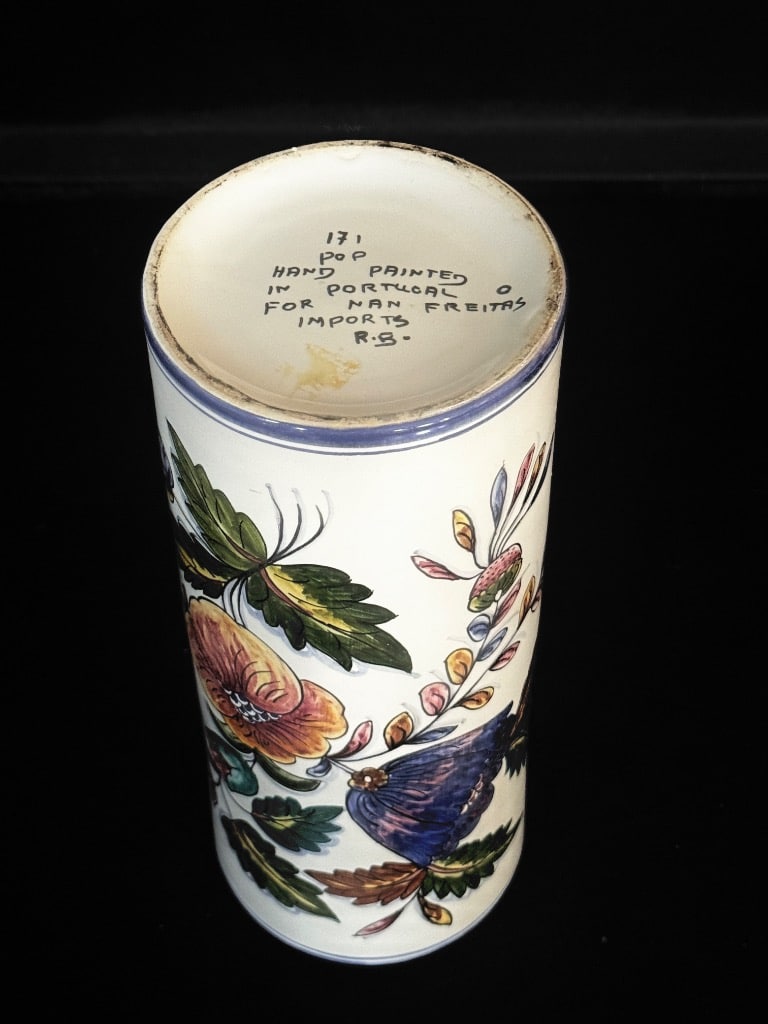 171
POP
HAND PAINTED
IN PORTUGAL O
FOR NAN FREITAS
IMPORTS
R.B.